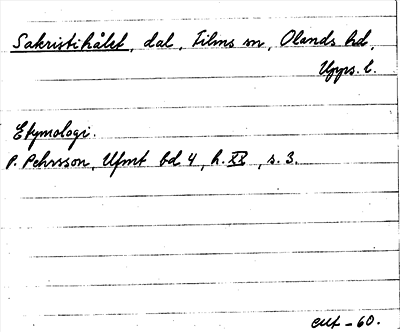 Sakristihålet, dal, Films sn, Olands hd,
Upps. l.
Etymologi.
P. Pehrsson, Ufmt bd. 4, h. XX, s. 3.
– 60.